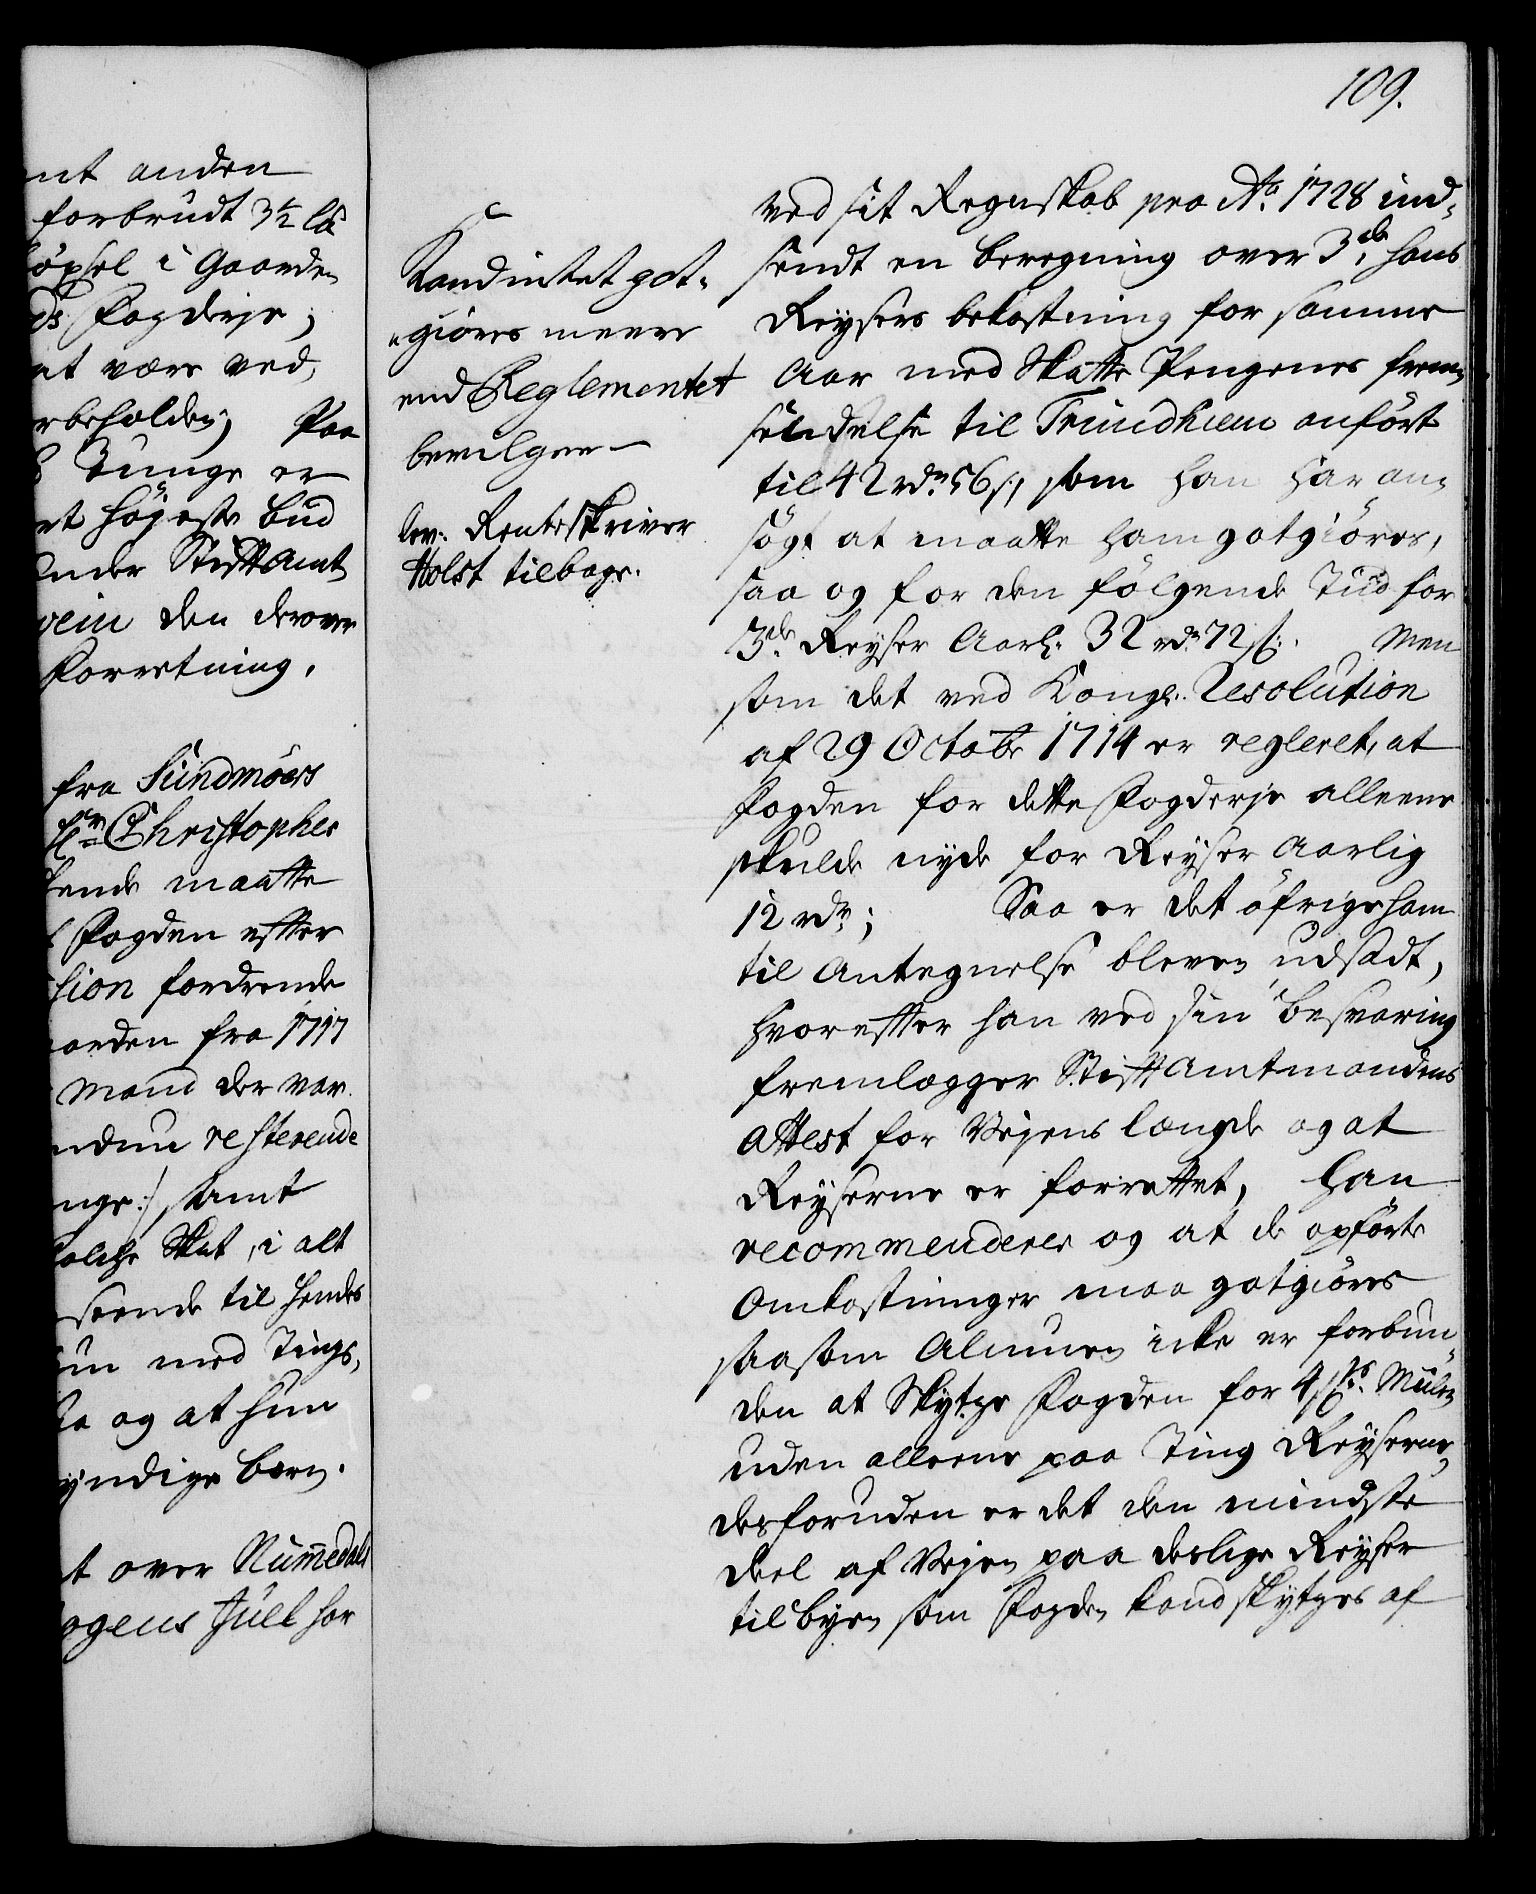 109.
nt anden
forbrudt 3½ lå
öxsel i Gaarden
ds Fogderje;
at være ved,
rbeholden; Paa
Tunge er
rt höjeste bud
under Stiftamt
vein den derover
Forretning.
fra Sundmöers
Sr Christopher
kende maatte
Fogden efter
sion fordrende
aarden fra 1717
Mand der var
endnu resterende
nge:/ samt
olche Skat, i alt
seende til hendes
un med Tings,
og at hun
yndige børn.
t over Nummedals
ogens Juel har
Kand intet got-
giöres meere
end Reglementet
bevilger
lev: Renteskriver
Holst tilbage.
ved sit Regnskab pro Ao. 1728 ind-
sendt en beregning over 3de hans
Reysers bekostning for samme
Aar med Skatte Pengenes frem-
sendelse til Trundhiem anfört
til 42 rdr 56 s, som han har an-
sögt at maatte ham gotgiöres,
saa og for den fölgende Tiid for
3de Reyser Aarl: 32 rdr 72 s:. Men
som det ved Kongl: Resolution
af 29 Octobr 1714 er regleret, at
Fogden for dette Fogderje alleene
skulde nyde for Reyser Aarlig
12 rdr; Saa er det öfrige ham
til Antegnelse bleven udsadt,
hvorefter han ved sin besvaring
fremlegger Stiftamtmandens
Attest for Vejens længde og at
Reyserne er forrettet, han
recommenderer og at de opförte
Omkostninger maa gotgiöres
saasom Almuen icke er forbun-
den at Skytze Fogden for 4 s: Miilen
uden alleene paa Ting Reyserne,
desforuden er det den mindste
deel af Vejen paa deslige Reyser
til byen som Fogden kand skytzes af